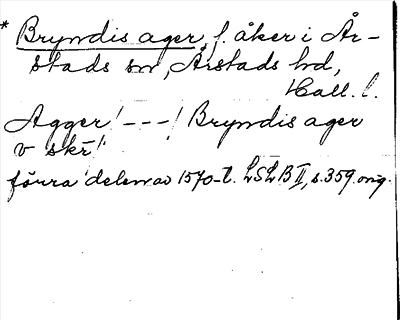 * Bryndis ager, f. åker i År-
stads sn, Årstads hd,
Hall. l.
Agger! - - -! Bryndis ager
v skr!
förra delen av 1570-t. LSLB II, s. 359. orig.